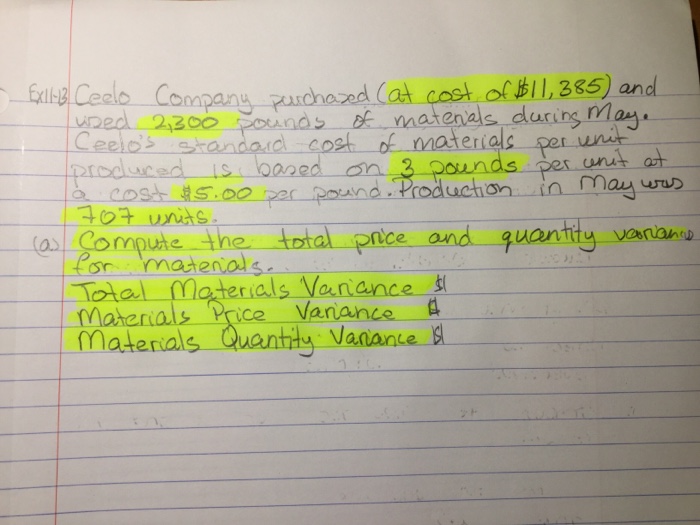 Ex11-13 Ceelo Company purchased (at cost of $11,385) and
used 2,300 pounds of materials during May.
Ceelo's standard cost of materials per unit
produced is based on 3 pounds per unit at
a cost $5.00 per pound. Production in May was
707 units.
(a) Compute the total price and quantity variance
for materials.
Total Materials Variance $
Materials Price Variance $
Materials Quantity Variance $